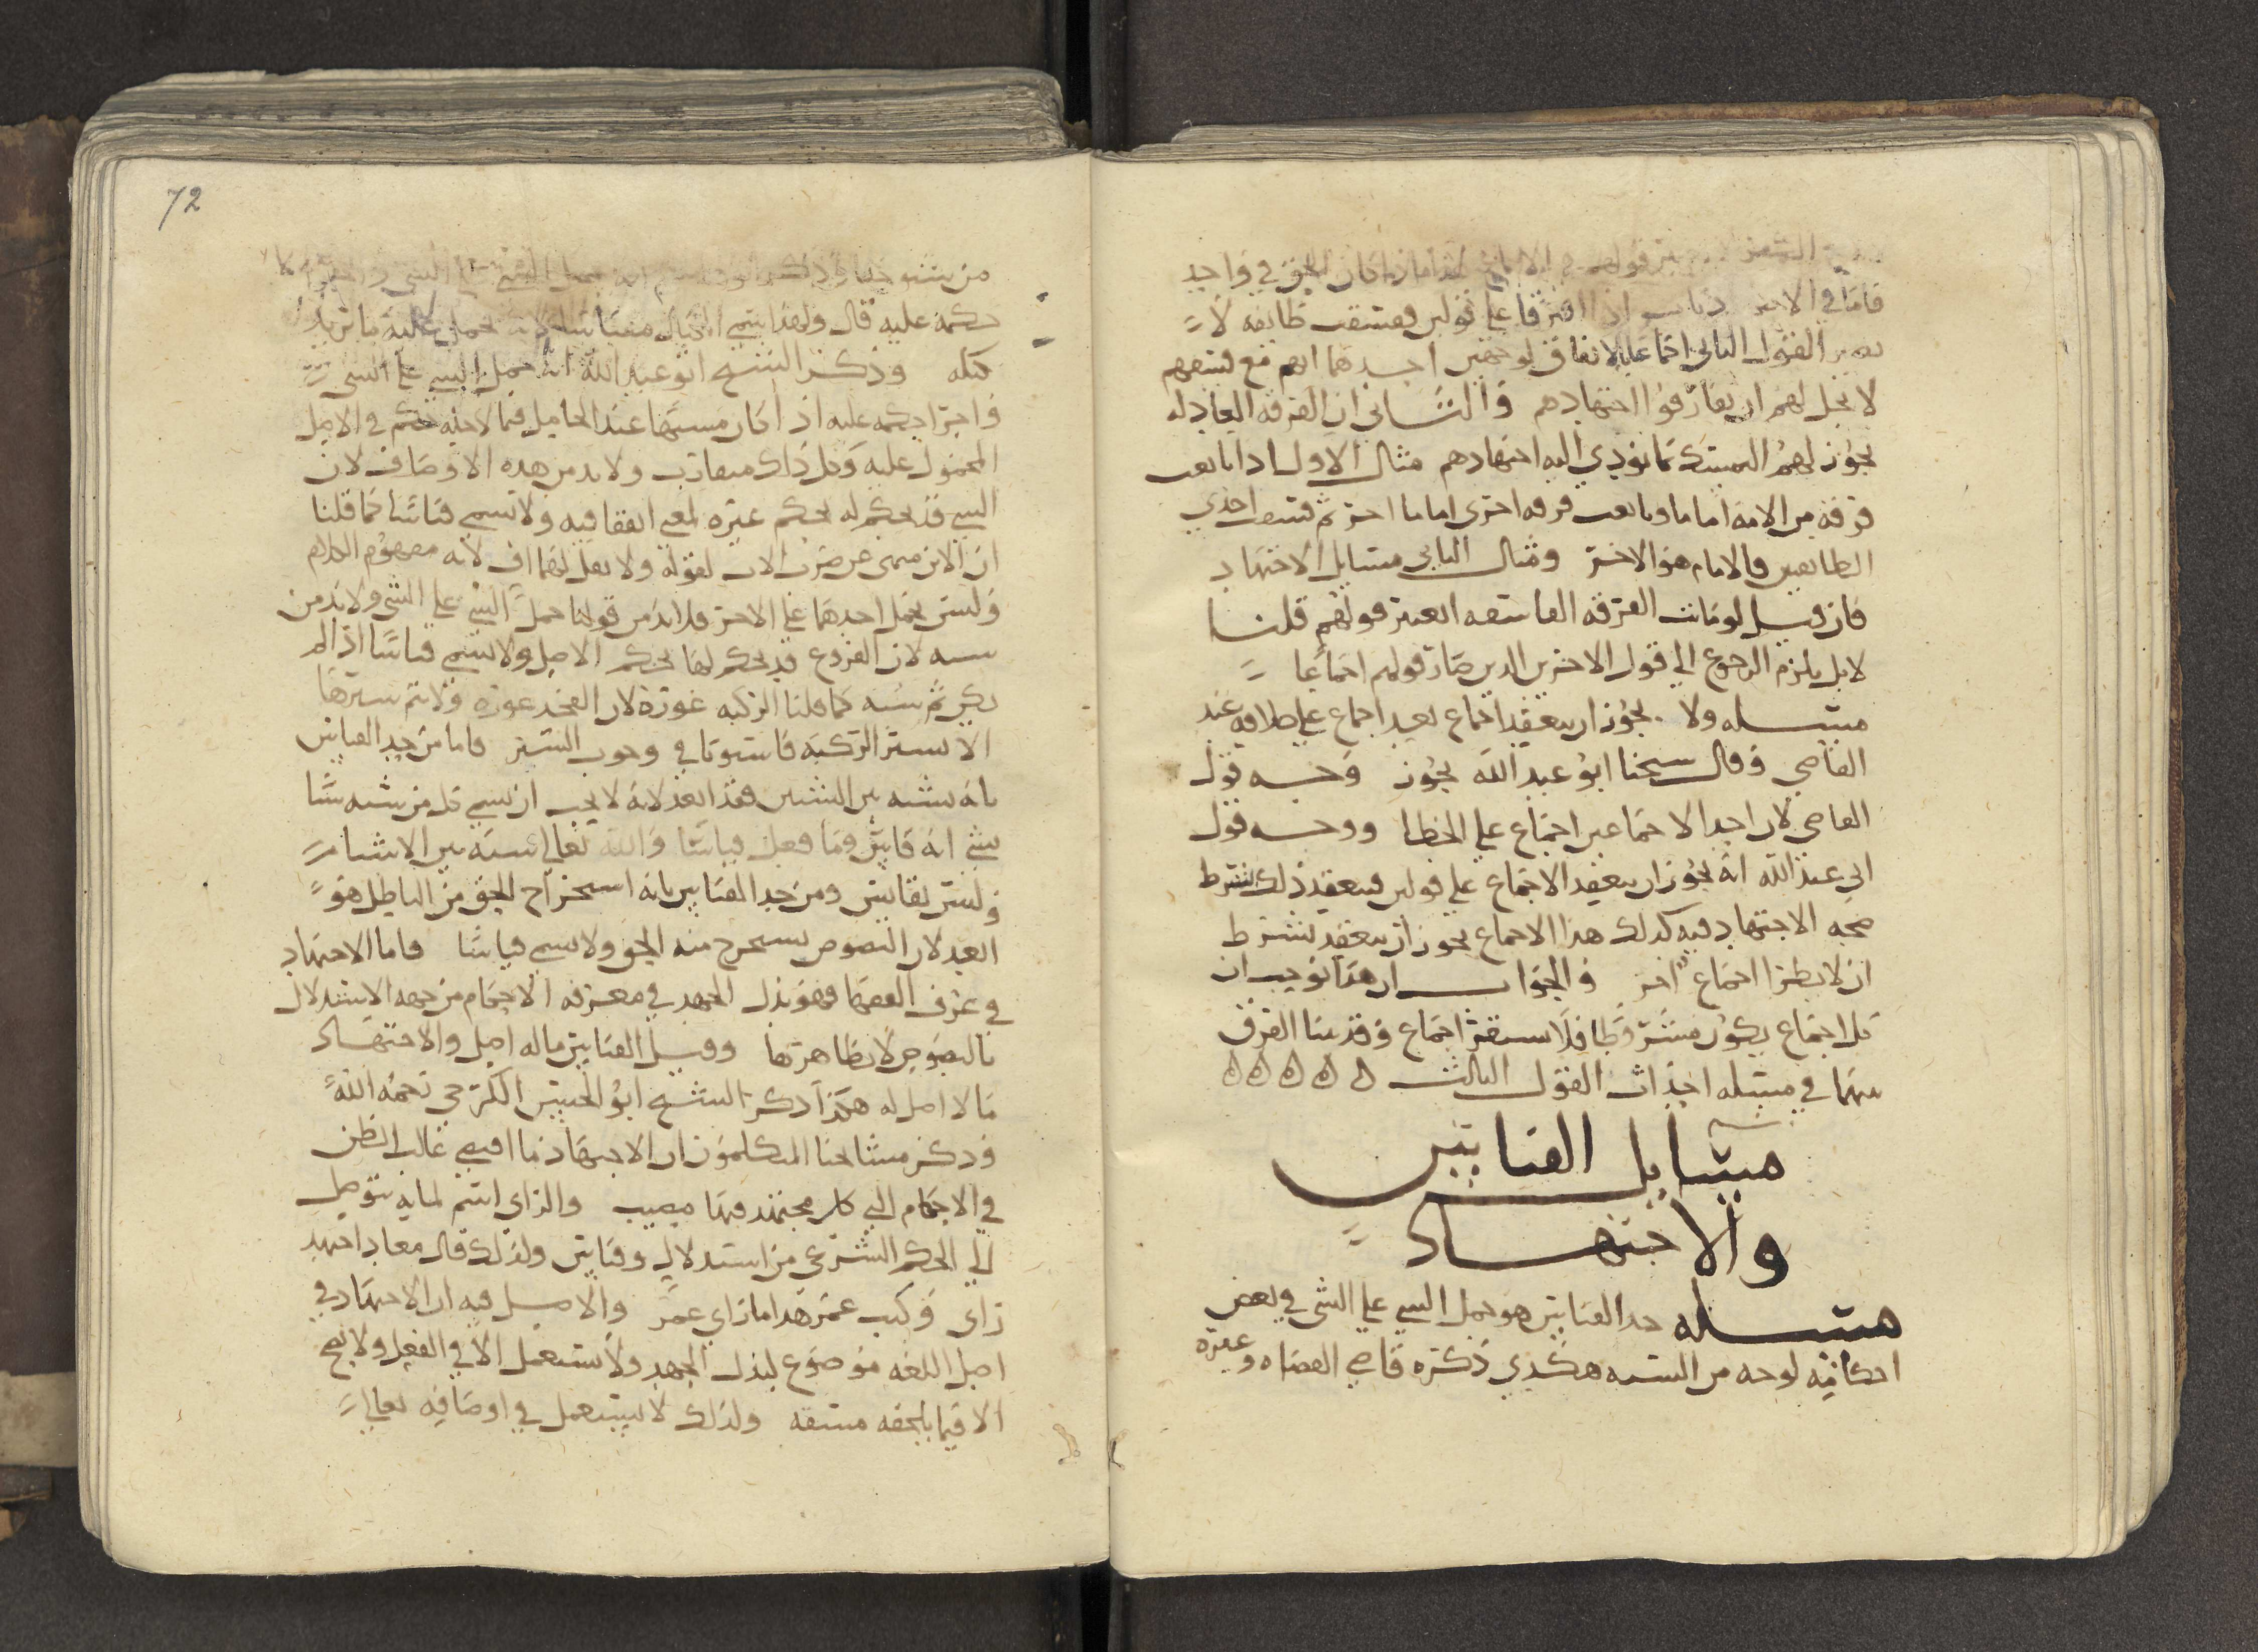 قولهم في الاجماع لان الحق في واحد
فاما في الاجتهاديات اذا افترقا على قولين ففسقت طائفة لا
يصير القول الثاني اجماعا بالاتفاق لوجهين احدهما انهم مع فسقهم
لا يحل لهم ان يفارقوا اجتهادهم والثاني ان الفرقة العادلة
يجوز لهم التمسك بما يؤدي اليه اجتهادهم مثال الاول اذا بايعت
فرقة من الامة اماما وبايعت فرقة اخرى اماما اخر ثم فسقت احدى
الطائفتين فالامام هو الاخر ومثال الثاني مسايل الاجتهاد
فان قيل لو ماتت الفرقة الفاسقة ايعتبر قولهم قلنا
لا بل يلزم الرجوع الى قول الاخرين الذين صار قولهم اجماعا
مسئله ولا يجوز ان ينعقد اجماع بعد اجماع على خلافه عند
القاضي وقال شيخنا ابو عبد الله يجوز وجه قول
القاضي لان احد الاجماعين اجماع على الخطا ووجه قول
ابي عبد الله انه يجوز ان ينعقد الاجماع على قولين فينعقد ذلك بشرط
صحة الاجتهاد فيه كذلك هذا الاجماع يجوز ان ينعقد بشرط
ان لا يطرا اجماع اخر والجواب ان هذا يوجب ان
كل اجماع يكون مشروطا فلا يستقر اجماع وقد بينا الفرق
بينهما في مسئله احداث القول الثالث ه ه ه ه ه
مسايل القياس
والاجتهاد
مسئله حد القياس هو حمل الشي على الشي في بعض
احكامه لوجه من الشبه هكذى ذكره قاضي القضاه وغيره
72
من شيوخنا وذكر ابو هاشم انه حمل الشي على الشي واجرا
حكمه عليه قال ولهذا يسمى المكيال مقياسا لانه يحمل عليه ما يراد
كيله وذكر الشيخ ابو عبد الله انه حمل الشي على الشي
واجرا حكمه عليه اذا كان مشبها عند الحامل فيما لاجله حكم في الاصل
المحمول عليه وكل ذلك متقارب ولا بد من هذه الاوصاف لان
الشي قد يحكم له بحكم غيره لمعنى اتفقا فيه ولا يسمى قياسا كما قلنا
ان الابن منهى عن ضرب الاب لقوله ولا تقل لهما اف لانه مفهوم الكلام
وليس يحمل احدهما على الاخر فلا بد من قولنا حمل الشي على الشي ولا بد من
شبه لان الفروع قد يحكم لها بحكم الاصل ولا يسمى قياسا اذا لم
يكن ثم شبه كما قلنا الركبه عورة لان الفخذ عورة ولا يتم سترها
الا بستر الركبه فاستوتا في وجوب الستر فاما من حد القياس
بانه شبه بين الشيئين فقد ابعد لانه لا يجب ان يسمى كل من شبه شيا
بشي انه قايس وما فعله قياسا والله تعالى شبه بين الاشيا
وليس بقايس ومن حد القياس بانه استخراج الحق من الباطل فهو
ابعد لان النصوص يستخرج منه الحق ولا يسمى قياسا فاما الاجتهاد
في عرف الفقها فهو بذل الجهد في معرفه الاحكام من جهه الاستدلال
بالنصوص لا بظاهرها وقيل القياس ما له اصل والاجتهاد
ما لا اصل له هكذا ذكر الشيخ ابو الحسن الكرخي رحمه الله
وذكر مشايخنا المتكلمون ان الاجتهاد ما اقتضى غالب الظن
في الاحكام التي كل مجتهد فيها مصيب والراي اسم لما به يتوصل
الى الحكم الشرعي من استدلال وقياس ولذلك قال معاذ اجتهد
راى وكتب عمر هذا ما راى عمر والاصل فيه ان الاجتهاد في
اصل اللغه موضوع لبذل الجهد ولا يستعمل الا في الفعل ولا يصح
الا فيما يلحقه مشقه ولذلك لا يستعمل في اوصافه تعالى